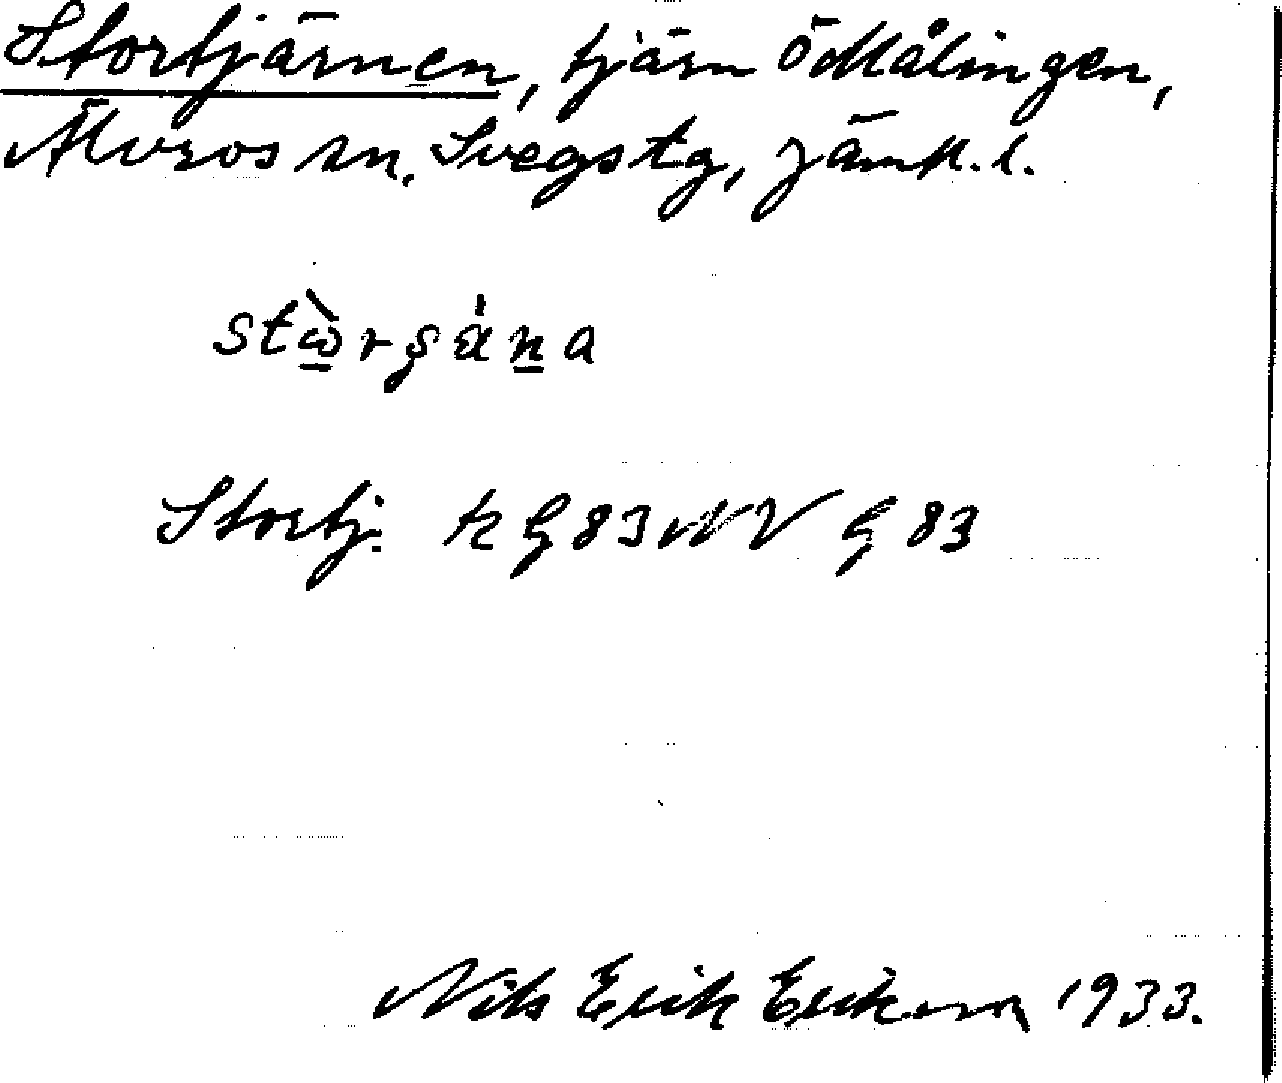 Stortjärnen, tjärn ö Målingen,
Älvros sn. Svegs tg, Jämtl. l.
stὼ̱rşȧṉa
Stortj. k G 83 NV G 83
Nils Erik Erikson 1933.